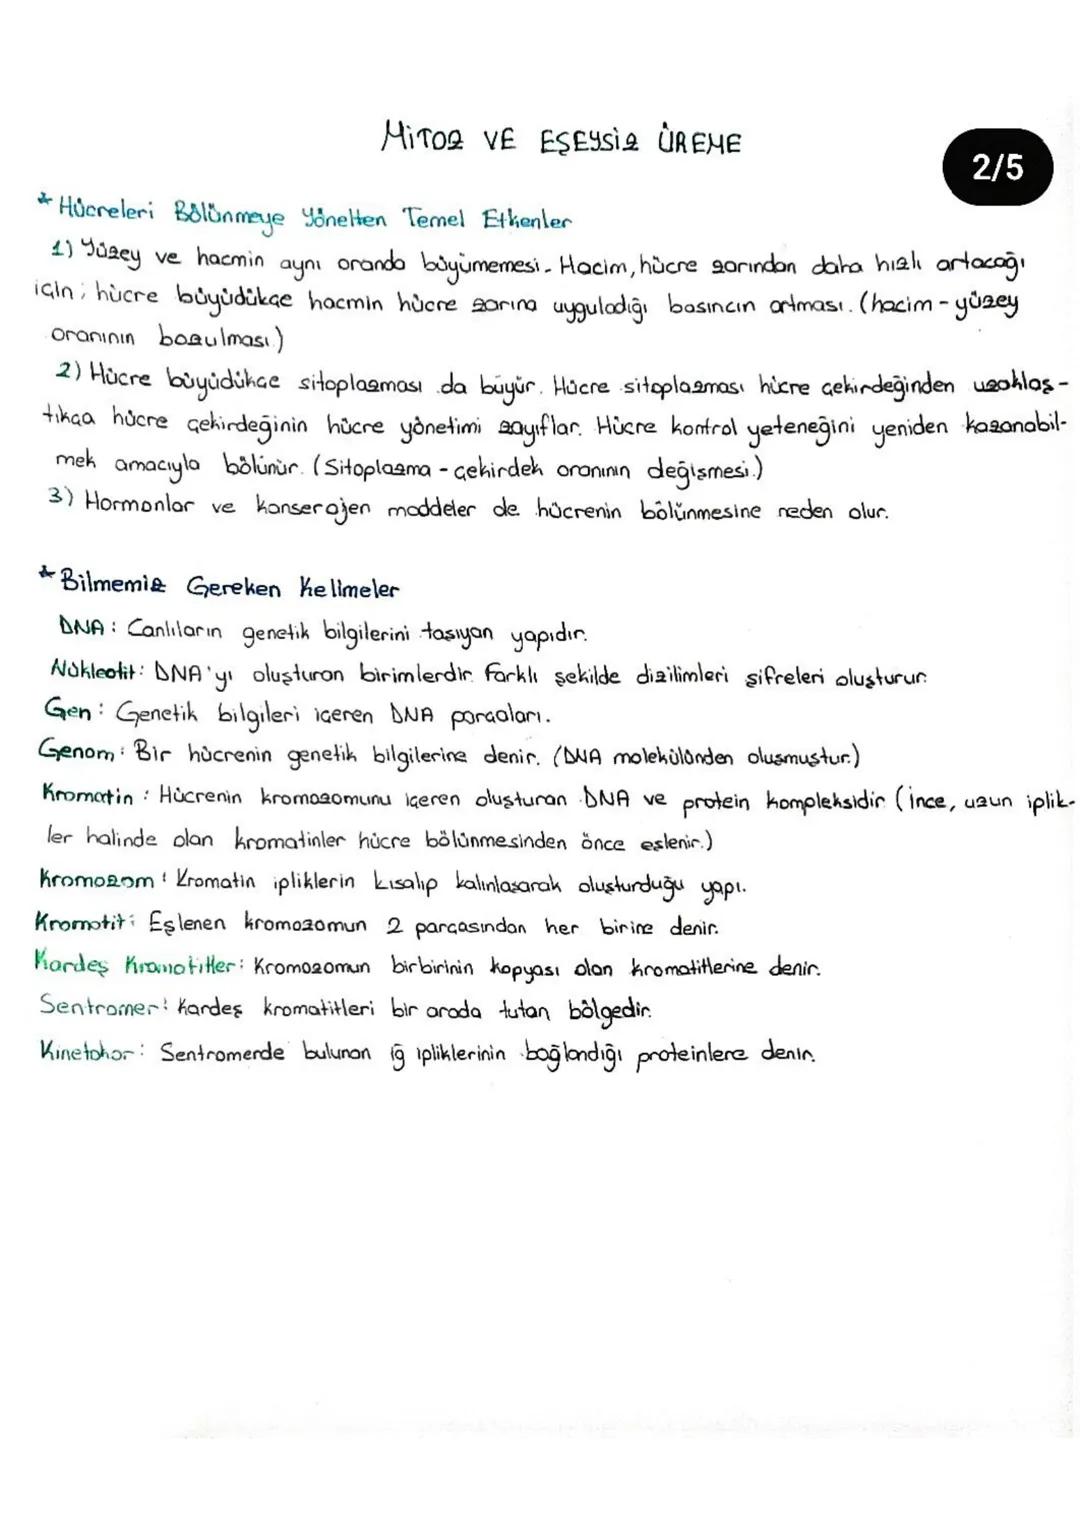 MİTOZ VE EŞEYSİZ ÜREME
2/5
* Hücreleri Bölünmeye Yönelten Temel Etkenler
1) Yüzey ve hacmin aynı oranda büyümemesi. Hacim, hücre zarından daha hızlı artacağı
için; hücre büyüdükçe hacmin hücre zarına uyguladığı basıncın artması. (hacim - yüzey
oranının bozulması.)
2) Hücre büyüdükçe sitoplazması da büyür. Hücre sitoplazması hücre çekirdeğinden uzaklaş-
tıkça hücre çekirdeğinin hücre yönetimi zayıflar. Hücre kontrol yeteneğini yeniden kazanabil-
mek amacıyla bölünür. (Sitoplazma - çekirdek oranının değişmesi.)
3) Hormonlar ve kanserojen maddeler de hücrenin bölünmesine neden olur.
* Bilmemiz Gereken Kelimeler
DNA: Canlıların genetik bilgilerini taşıyan yapıdır.
Nükleotit: DNA'yı oluşturan birimlerdir. Farklı şekilde dizilimleri şifreleri oluşturur.
Gen: Genetik bilgileri içeren DNA parçaları.
Genom: Bir hücrenin genetik bilgilerine denir. (DNA molekülünden oluşmuştur.)
Kromatin: Hücrenin kromozomunu içeren oluşturan DNA ve protein kompleksidir. (İnce, uzun iplik-
ler halinde olan kromatinler hücre bölünmesinden önce eşlenir.)
Kromozom: Kromatin ipliklerin kısalıp kalınlaşarak oluşturduğu yapı.
Kromatit: Eşlenen kromozomun 2 parçasından her birine denir.
Kardeş Kromatitler: Kromozomun birbirinin kopyası olan kromatitlerine denir.
Sentromer: Kardeş kromatitleri bir arada tutan bölgedir.
Kinetokor: Sentromerde bulunan iğ ipliklerinin bağlandığı proteinlere denir.